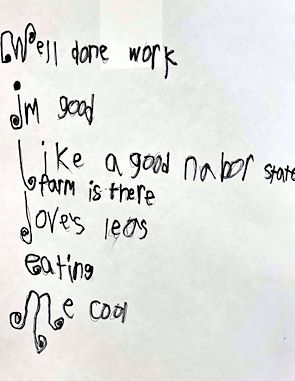 Well done work
im good
Like a good nabor state
farm is there
loves legs
eating
Me cool